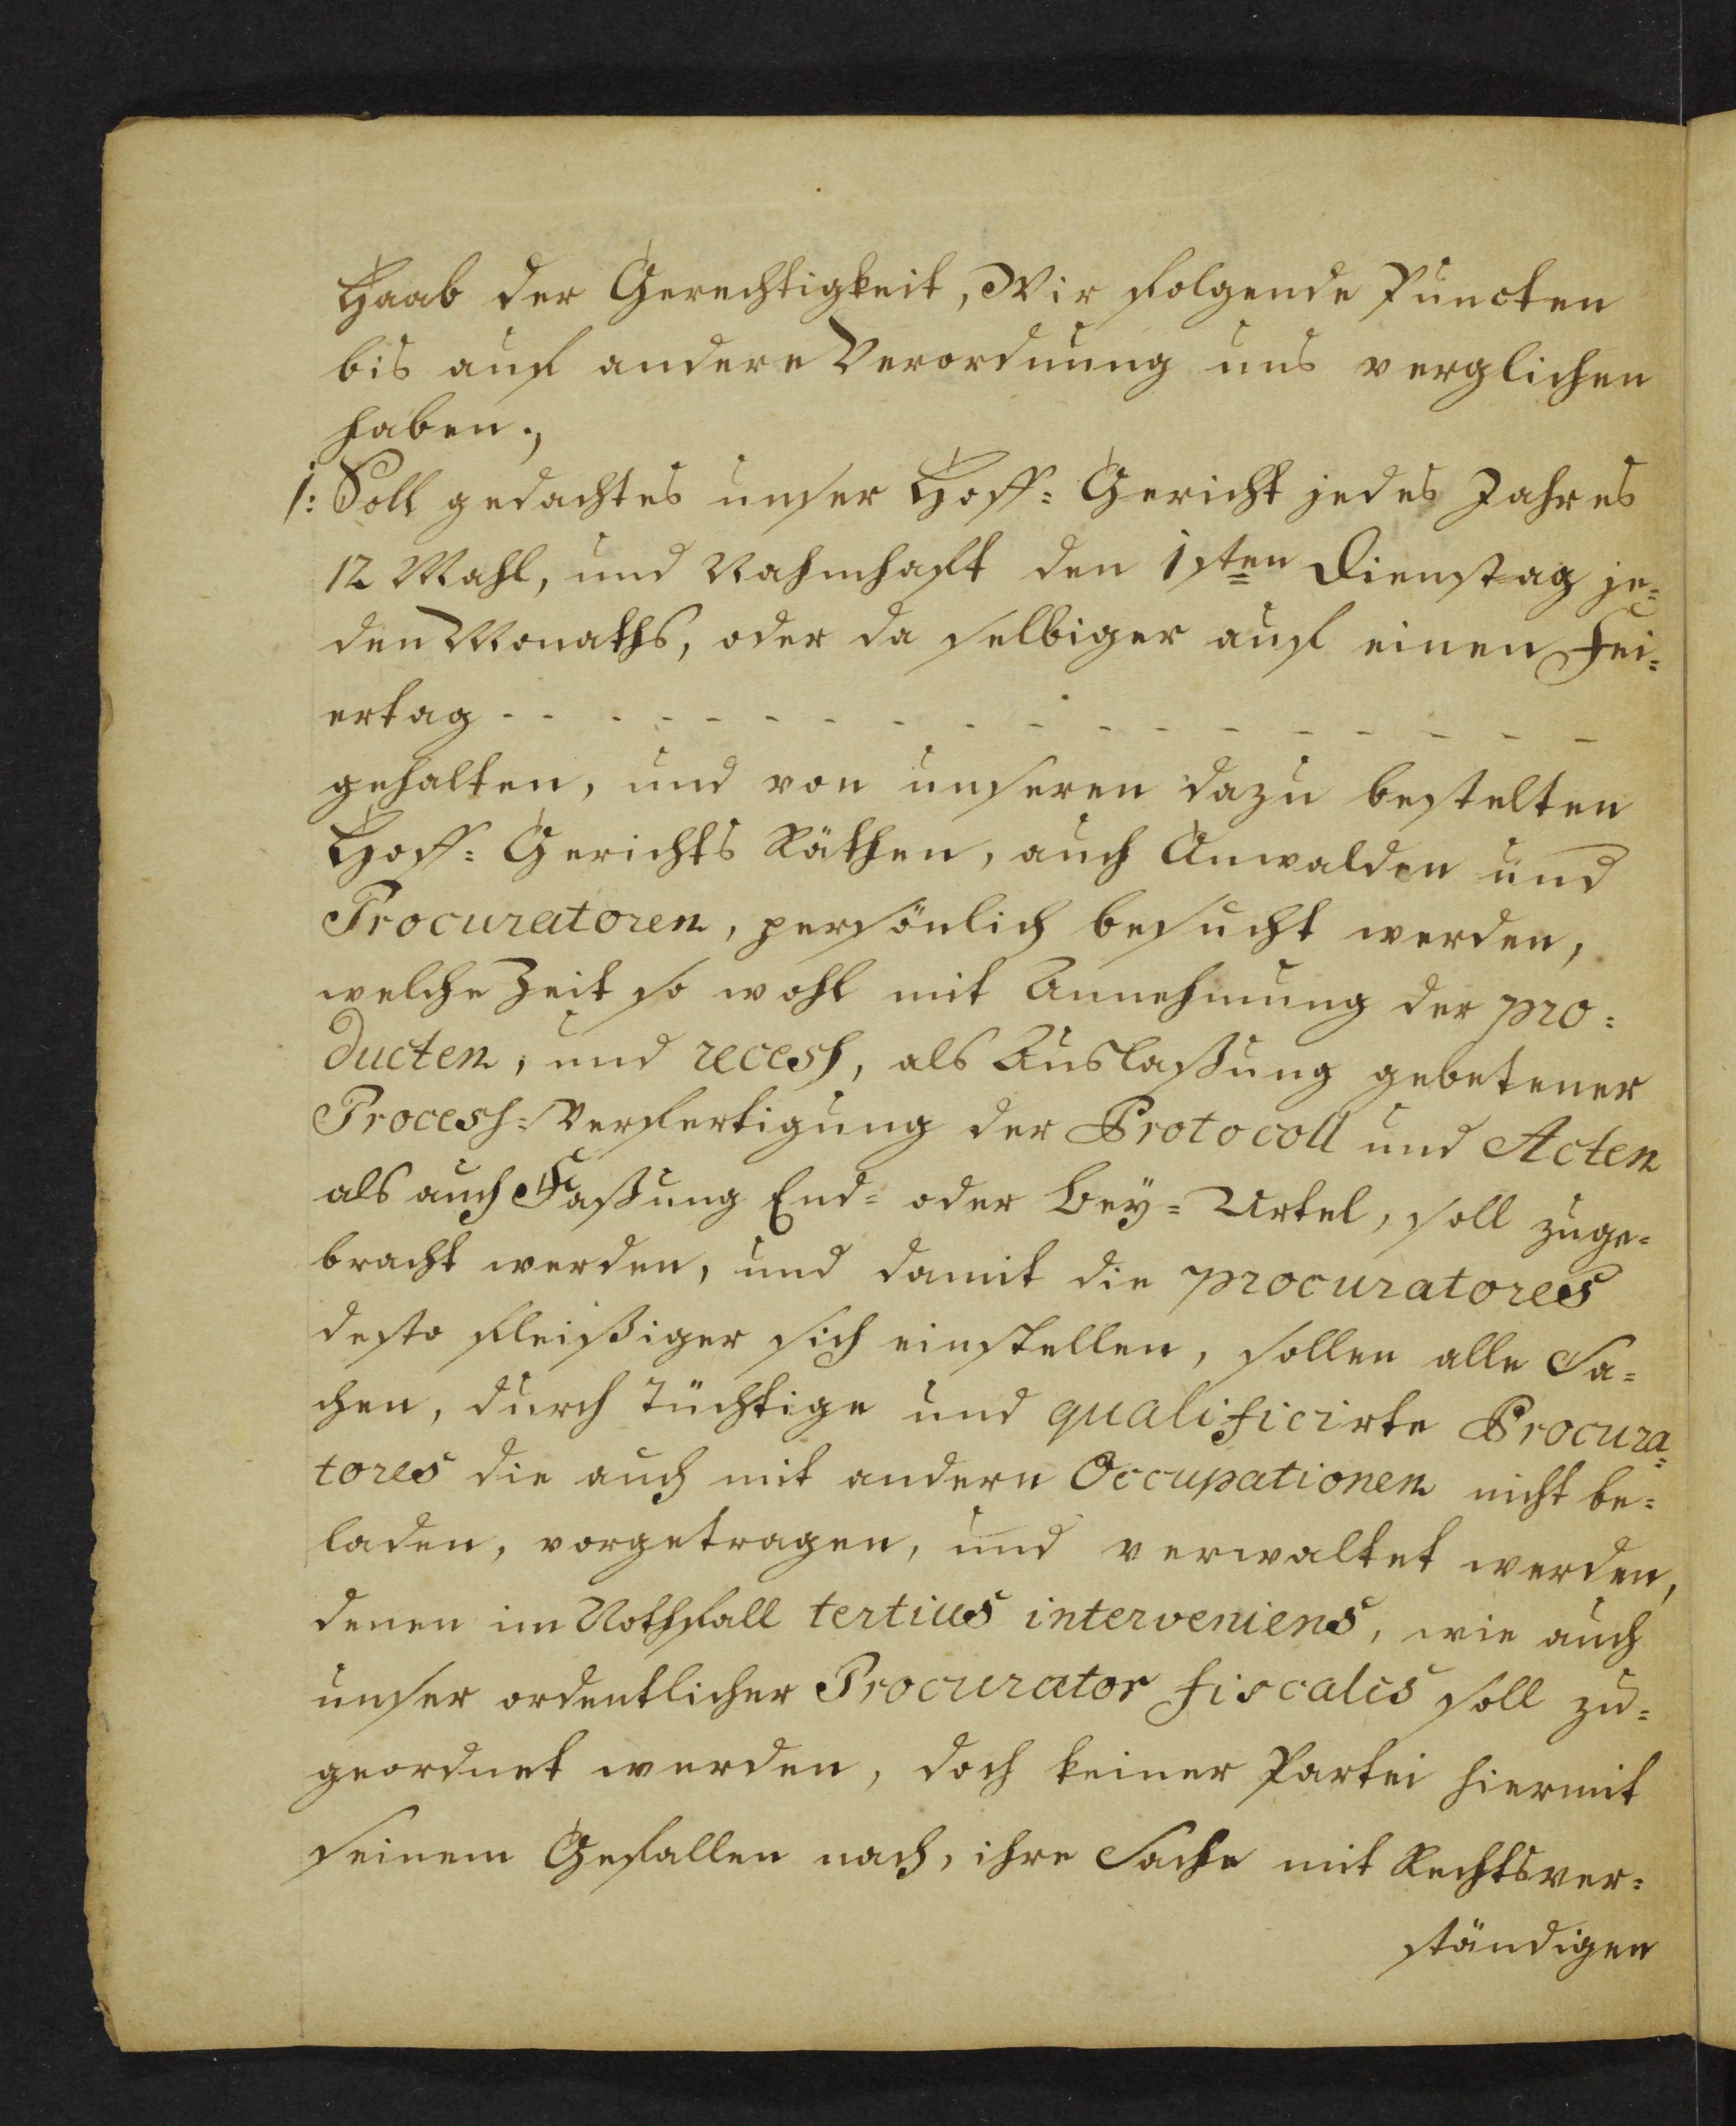 Haab der Gerechtigkeit, Wir folgende Puncten
bis auf andere Verordnung uns verglichen
haben.,
1: Soll gedachtes unser Hoff= Gericht jedes Jahres
12 Mahl, und Nahmhaft den 1sten Dienstag je=
den Monaths, oder da selbiger auf einen Fei=
ertag - - - - - - - - - - - - - - - - - -
gehalten, und von unseren dazu bestelten
Hoff= Gerichts Räthen, auch Anwalden und
Procuratoren, persönlich besucht werden,
welche Zeit so wohl mit Annehmung der pro=
ducten, und recess, als Auslaßung gebetener
Process= Verfertigung der Protocoll und Acten
als auch Faßung End= oder Bey= Urtel, soll zuge=
bracht werden, und damit die procuratores
desto fleißiger sich einstellen, sollen alle Sa=
chen, durch tüchtige und qualificirte Procura=
tores die auch mit andern Occupationen nicht be=
laden, vorgetragen, und verwaltet werden,
denen im Nothfall tertius interveniens, wie auch
unser ordentlicher Procurator fiscalis soll zu=
geordnet werden, doch keiner Partei hiermit
seinem Gefallen nach, ihre Sache mit Rechtsver=
ständigen